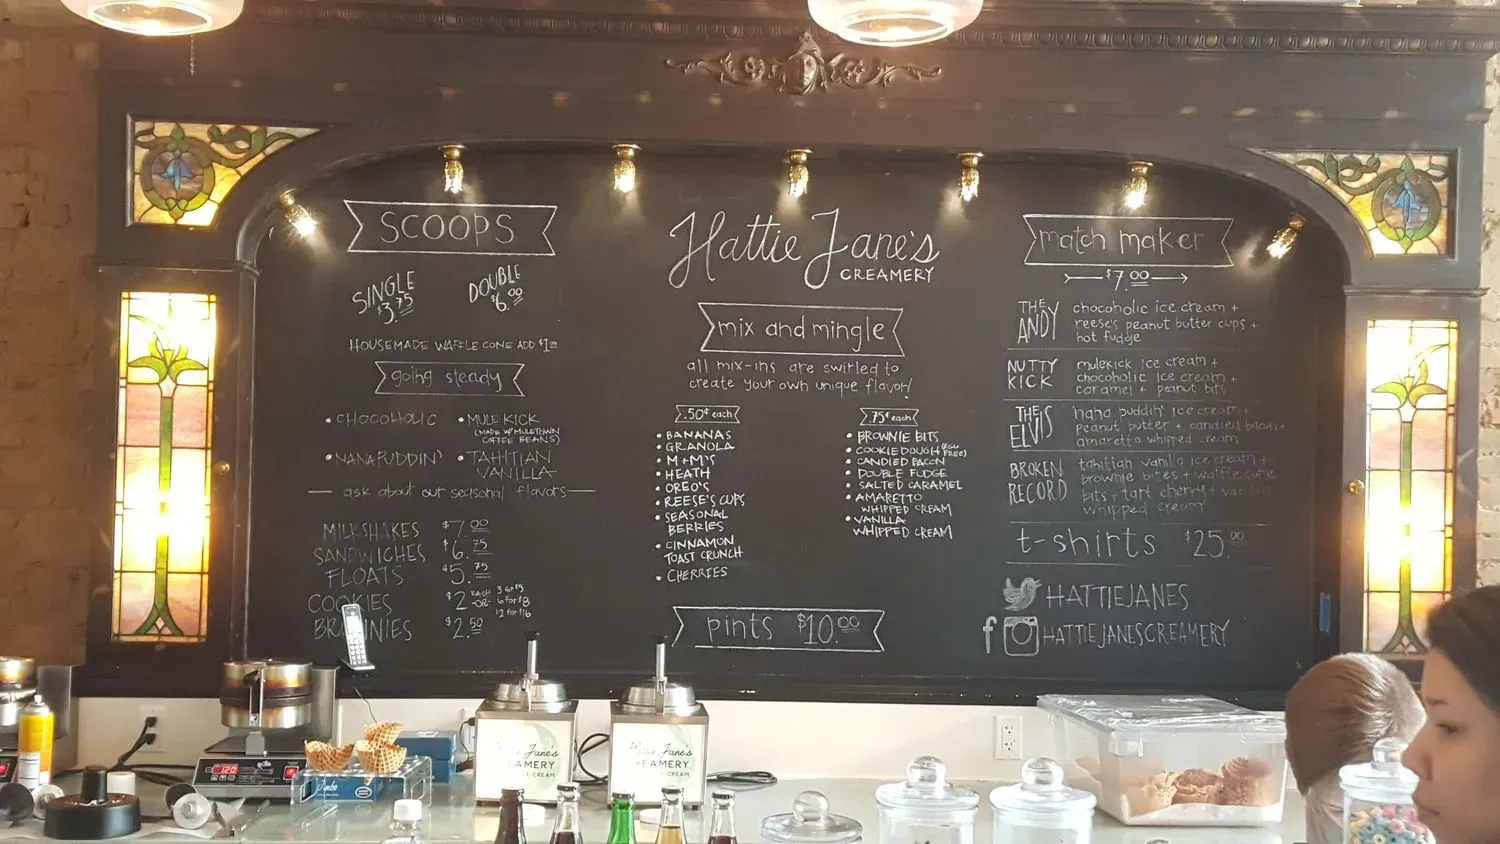 SCOOPS
SINGLE
$3.75
DOUBLE
$6.00
HOUSEMADE WAFFLE CONE ADD $1.00
going steady
• CHOCOHOLIC
• MULE KICK
(MADE W/ MULETOWN
COFFEE BEANS)
• NANAPUDDIN'
• TAHITIAN
VANILLA
ask about our seasonal flavors
MILKSHAKES $7.00
SANDWICHES $6.75
FLOATS $5.75
COOKIES $2 EACH -OR- 3 for $5
6 for $8
12 for $16
BROWNIES $2.50
Hattie Jane's
CREAMERY
mix and mingle
all mix-ins are swirled to
create your own unique flavor!
.50¢ each
• BANANAS
• GRANOLA
• M+M'S
• HEATH
• OREO'S
• REESE'S CUPS
• SEASONAL
BERRIES
• CINNAMON
TOAST CRUNCH
• CHERRIES
.75¢ each
• BROWNIE BITS
• COOKIE DOUGH (EGG FREE)
• CANDIED BACON
• DOUBLE FUDGE
• SALTED CARAMEL
• AMARETTO
WHIPPED CREAM
• VANILLA
WHIPPED CREAM
pints $10.00
match maker
$7.00
THE
ANDY
chocoholic ice cream +
reese's peanut butter cups +
hot fudge
NUTTY
KICK
mulekick ice cream +
chocoholic ice cream +
caramel + peanut bits
THE
ELVIS
nana puddin' ice cream +
peanut butter + candied bacon +
amaretto whipped cream
BROKEN
RECORD
tahitian vanilla ice cream +
brownie bites + waffle cone
bits + tart cherry + vanilla
whipped cream
t-shirts $25.00
HATTIEJANES
f HATTIEJANESCREAMERY
120
Jane's
EAMERY
CREAM
Jane's
EAMERY
CREAM